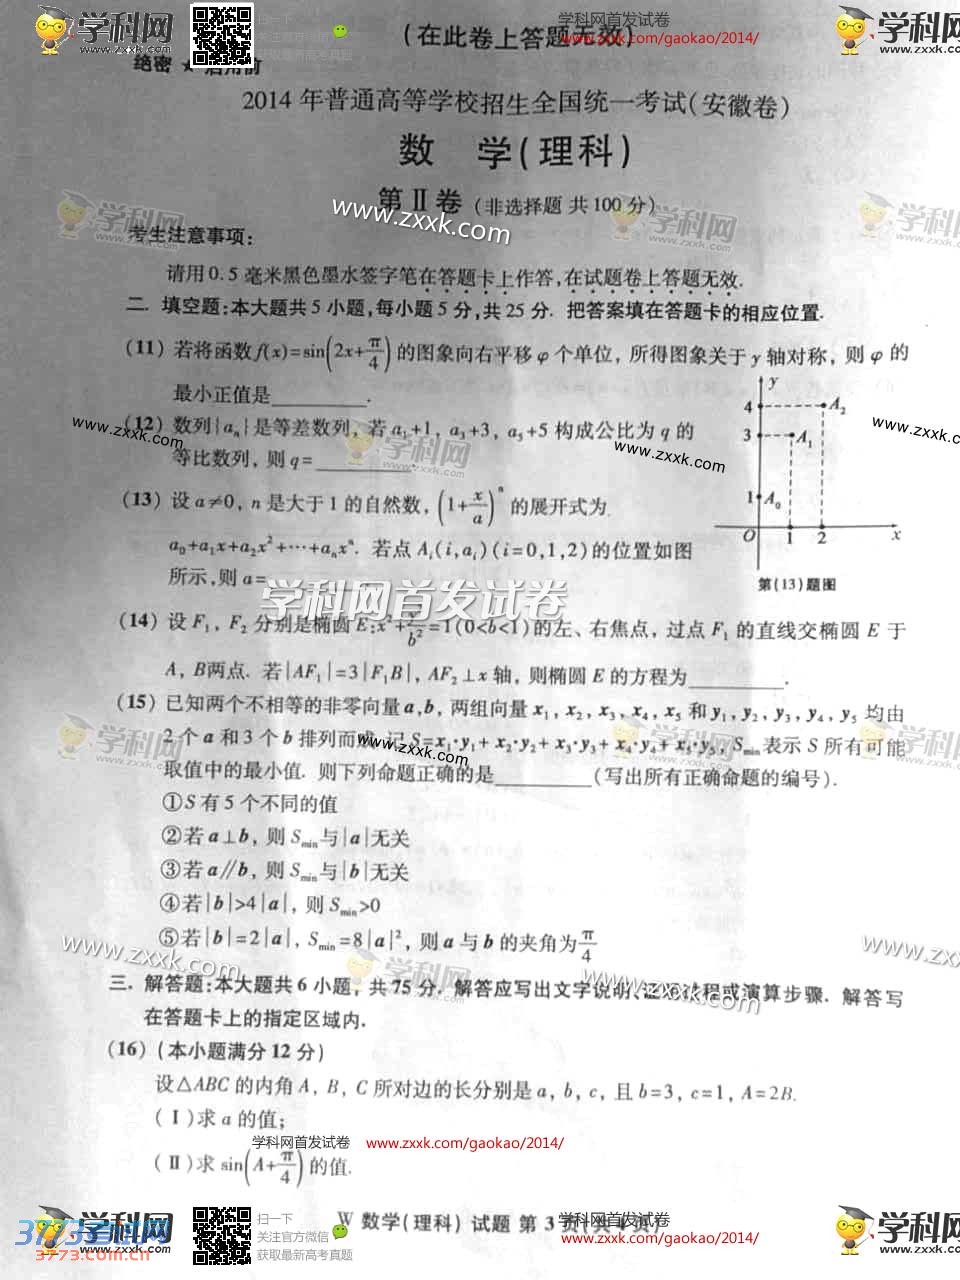 学科网 ZXXK.COM
扫一扫
关注官方微信
获取最新高考真题
学科网首发试卷
www.zxxk.com/gaokao/2014/
(在此卷上答题无效)
绝密 ★ 启用前
2014 年普通高等学校招生全国统一考试(安徽卷)
数 学(理科)
第 Ⅱ 卷 (非选择题 共 100 分)
www.zxxk.com
考生注意事项:
请用 0.5 毫米黑色墨水签字笔在答题卡上作答,在试题卷上答题无效.
二. 填空题:本大题共 5 小题,每小题 5 分,共 25 分. 把答案填在答题卡的相应位置.
(11) 若将函数 f(x)=sin(2x+π/4) 的图象向右平移 φ 个单位, 所得图象关于 y 轴对称, 则 φ 的
最小正值是________.
(12) 数列{aₙ}是等差数列, 若 a₁+1, a₃+3, a₅+5 构成公比为 q 的
等比数列, 则 q=________.
(13) 设 a≠0, n 是大于 1 的自然数, (1+x/a)ⁿ 的展开式为
a₀+a₁x+a₂x²+⋯+aₙxⁿ. 若点 Aᵢ(i,aᵢ)(i=0,1,2)的位置如图
所示,则 a=
y
4 A₂
3 A₁
1 A₀
O 1 2 x
第(13)题图
学科网首发试卷
(14) 设 F₁, F₂ 分别是椭圆 E:x²+y²/b²=1(0<b<1)的左、右焦点, 过点 F₁ 的直线交椭圆 E 于
A, B两点. 若|AF₁|=3|F₁B|, AF₂⊥x 轴, 则椭圆 E 的方程为________.
(15) 已知两个不相等的非零向量 a,b, 两组向量 x₁, x₂, x₃, x₄, x₅ 和 y₁, y₂, y₃, y₄, y₅ 均由
2 个 a 和 3 个 b 排列而成. 记 S=x₁·y₁+x₂·y₂+x₃·y₃+x₄·y₄+x₅·y₅, Sₘᵢₙ表示 S 所有可能
取值中的最小值. 则下列命题正确的是________(写出所有正确命题的编号).
①S 有 5 个不同的值
②若 a⊥b, 则 Sₘᵢₙ与|a|无关
③若 a∥b, 则 Sₘᵢₙ与|b|无关
④若|b|>4|a|, 则 Sₘᵢₙ>0
⑤若|b|=2|a|, Sₘᵢₙ=8|a|², 则 a 与 b 的夹角为π/4
三. 解答题:本大题共 6 小题, 共 75 分. 解答应写出文字说明、证明过程或演算步骤. 解答写
在答题卡上的指定区域内.
(16) (本小题满分 12 分)
设△ABC 的内角 A, B, C 所对边的长分别是 a, b, c, 且 b=3, c=1, A=2B.
(Ⅰ)求 a 的值;
学科网首发试卷 www.zxxk.com/gaokao/2014/
(Ⅱ)求 sin(A+π/4)的值.
W 数学(理科) 试题 第 3 页(共 4 页)
3773考试网
3773.com.cn
扫一扫
关注官方微信
获取最新高考真题
www.zxxk.com/gaokao/2014/
学科网 ZXXK.COM